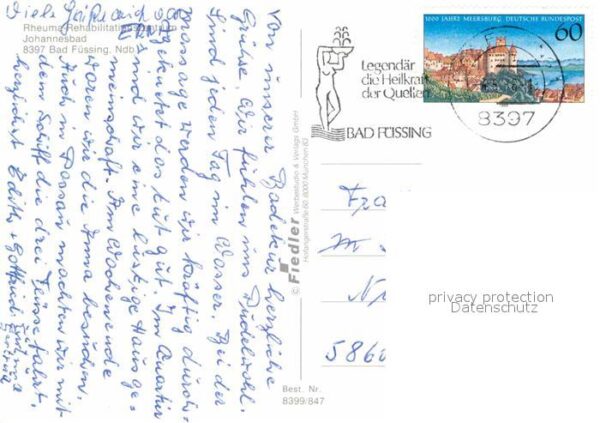 Viele Grüße auch
Rheuma-Rehabilitationszentrum
Johannesbad
8397 Bad Füssing, Ndb.
1000 JAHRE MEERSBURG DEUTSCHE BUNDESPOST
60
Legendär
die Heilkraft
der Quellen
BAD FÜSSING
8397
Von unserer Badekur herzliche
Grüße. Wir fühlen uns Pudelwohl.
Sind jeden Tag im Wasser. Bei der
Massage werden wir kräftig durch-
geknetet das tut gut. Im Quartier
sind wir eine lustige Hausge-
meinschaft. Am Wochenende
waren wir die Anna besuchen.
Auch in Passau machten wir mit
dem Schiff die drei Flüsse fahrt.
herzlichst Edith + Gottfried
© Fiedler Werbestudio & Verlags GmbH
8000 München 60
Fra
Nr
5860
privacy protection
Datenschutz
Best. Nr.
8399/847